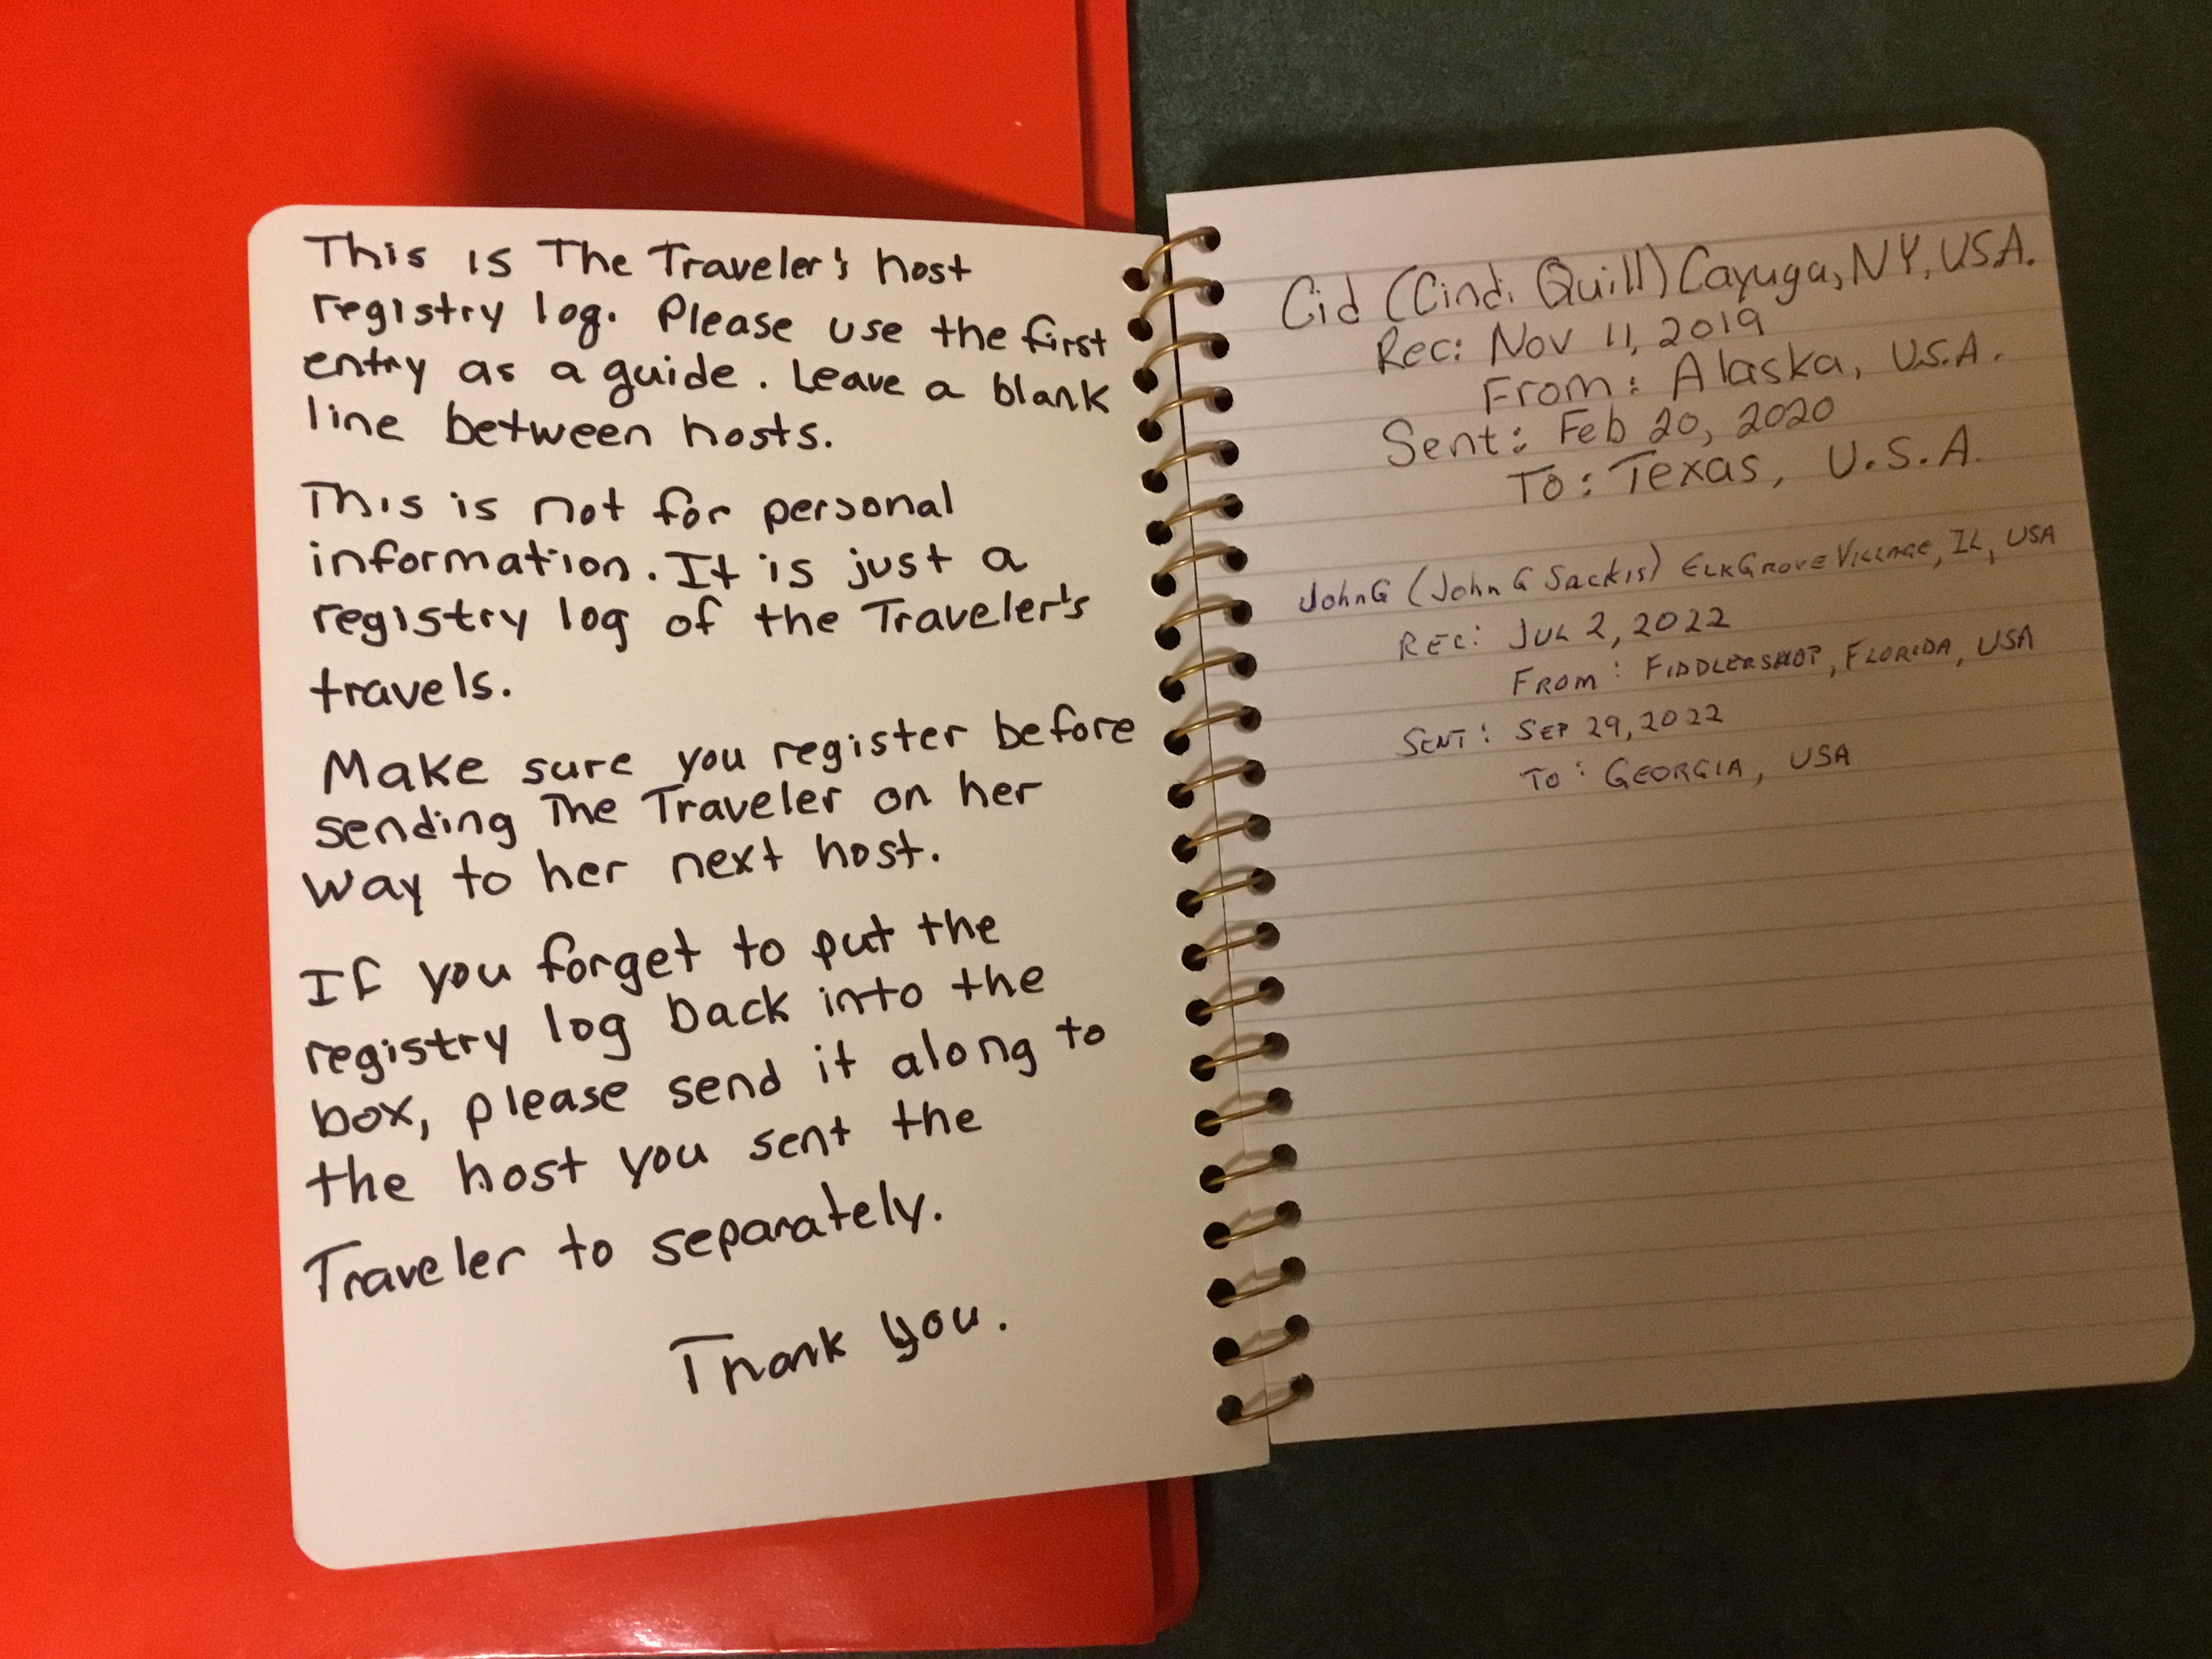 This is The Traveler's host
registry log. Please use the first
entry as a guide. Leave a blank
line between hosts.
This is not for personal
information. It is just a
registry log of the Traveler's
travels.
Make sure you register before
sending The Traveler on her
way to her next host.
If you forget to put the
registry log back into the
box, please send it along to
the host you sent the
Traveler to separately.
Thank you.
Cid (Cindi Quill) Cayuga, NY, USA.
Rec: Nov 11, 2019
From: Alaska, U.S.A.
Sent: Feb 20, 2020
To: Texas, U.S.A.
JohnG (John G Sackis) ElkGrove Village, IL, USA
REC: JUL 2, 2022
FROM: FIDDLERSHOP, FLORIDA, USA
SENT: SEP 29, 2022
TO: GEORGIA, USA